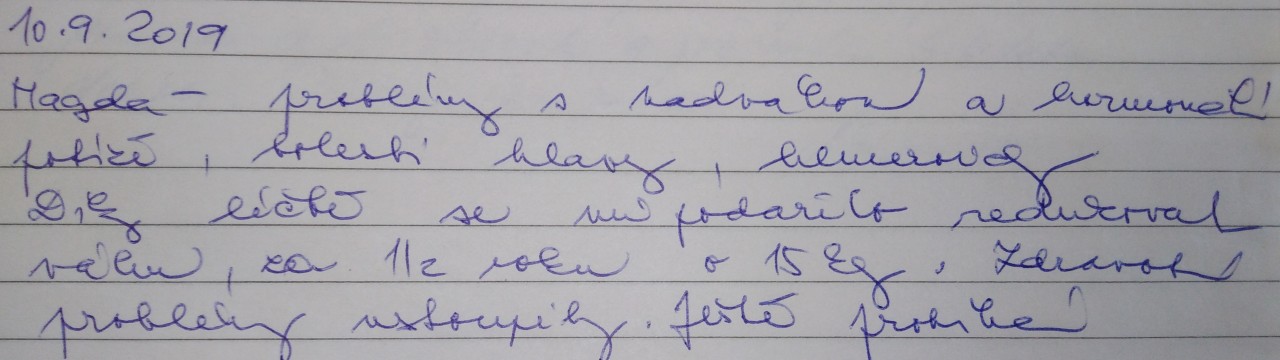 10.9.2019
Magda - problémy s nadváhou a hormonál.
potíže, bolesti hlavy, hemeroidy
Díky léčbě se mi podařilo redukovat
váhu, za 1/2 roku o 15 kg. Zdravotní
problémy ustoupily. Ještě probíhá